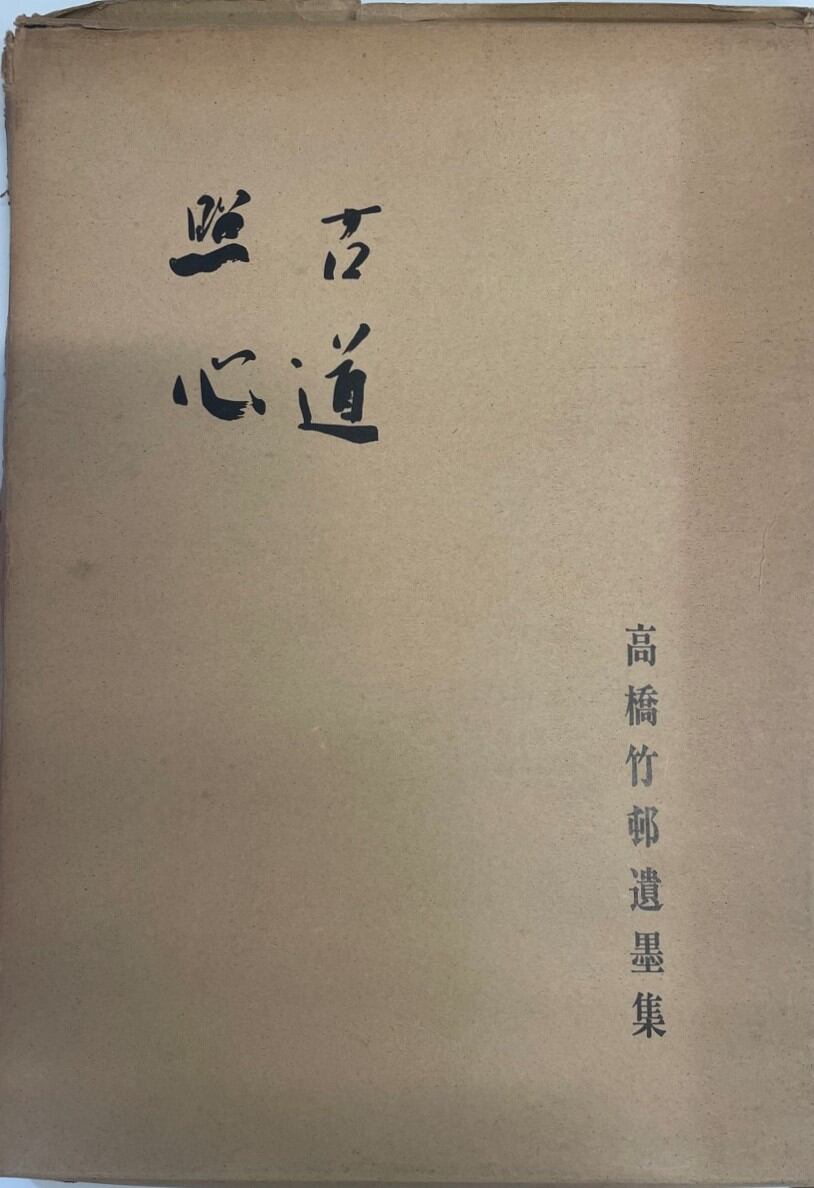 古道
照心
高橋竹邨遺墨集